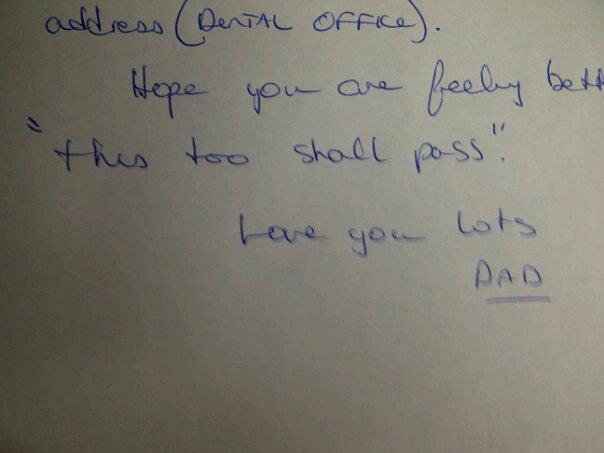 address (DENTAL OFFICE).
Hope you are feeling bett
"this too shall pass".
Love you lots
DAD